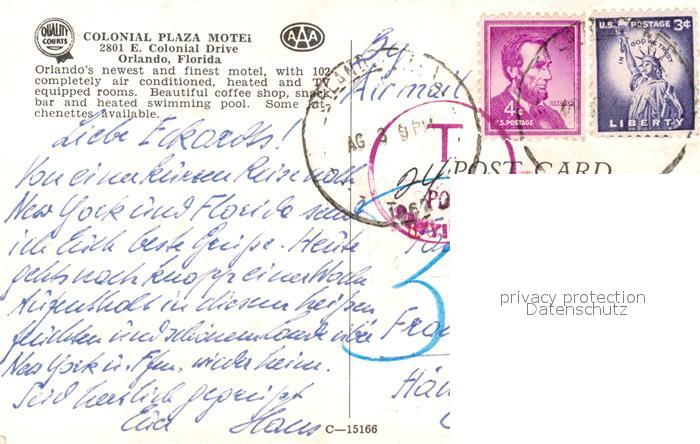 QUALITY COURTS
COLONIAL PLAZA MOTEL
2801 E. Colonial Drive
Orlando, Florida
AAA
Orlando's newest and finest motel, with 102
completely air conditioned, heated and TV
equipped rooms. Beautiful coffee shop, snack
bar and heated swimming pool. Some kit-
chenettes available.
By
Airmail
4¢
LINCOLN
U.S. POSTAGE
U.S. POSTAGE 3¢
IN GOD WE TRUST
LIBERTY
AG 3 9 PM
T
24
POST CARD
Liebe Eckardts!
Von einer kurzen Reise nach
New York und Florida sende
ich Euch beste Grüße. Heute
gehts nach knapp einer Woche
Aufenthalt in diesem heißen
feuchten und schönen Lande über
New York u. Ffm. wieder heim.
Seid herzlich gegrüßt
Euer Hans
3
Fra
Hän
privacy protection
Datenschutz
C—15166